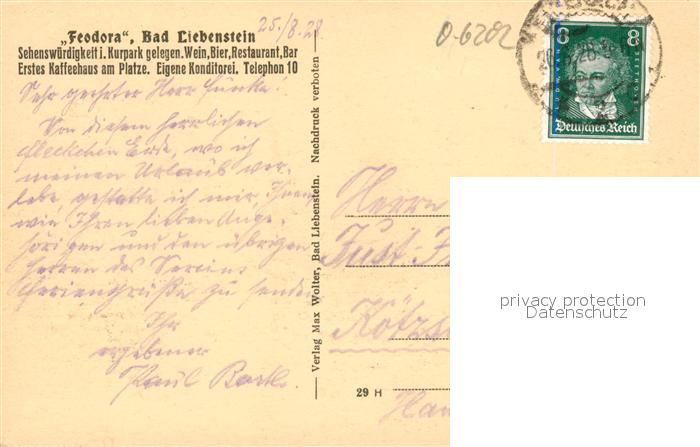 25./8.28
0-6202
„Feodora", Bad Liebenstein
Sehenswürdigkeit i. Kurpark gelegen. Wein, Bier, Restaurant, Bar
Erstes Kaffeehaus am Platze. Eigene Konditorei. Telephon 10
Sehr geehrter Herr Funke!
Von diesem herrlichen
Fleckchen Erde, wo ich
meinen Urlaub ver-
lebe, gestatte ich mir, Ihnen
wie Ihren lieben Ange-
hörigen und den übrigen
Herren des Vereins
Feriengrüße zu senden
Ihr
ergebener
Paul
Verlag Max Wolter, Bad Liebenstein. Nachdruck verboten
29 H
8 8
LUDW. VAN BEETHOVEN
Deutsches Reich
Herrn
Just.
privacy protection
Datenschutz